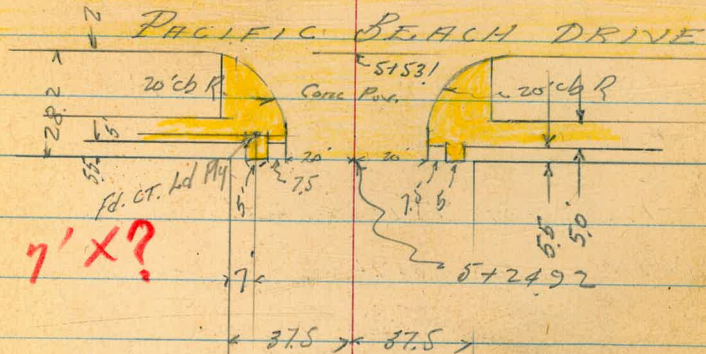 PACIFIC BEACH DRIVE
2
5+531
20' cb R
Conc Pav.
20' cb R
28.2
5'
5.5
20' 20'
Fd. CT. Ld Plg
5' 7.5
7.5 5'
5.5 5.0
7' X ?
7'
5+24.92
37.5 37.5